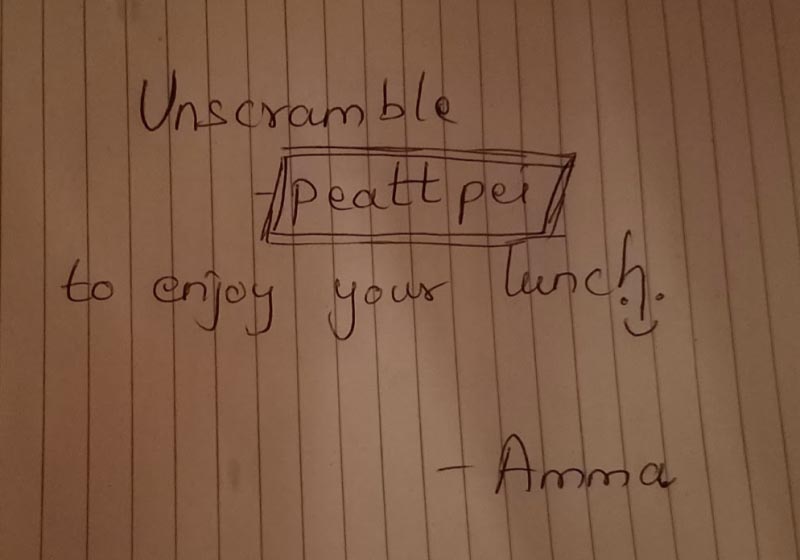 Unscramble
peattpei
to enjoy your lunch.
- Amma